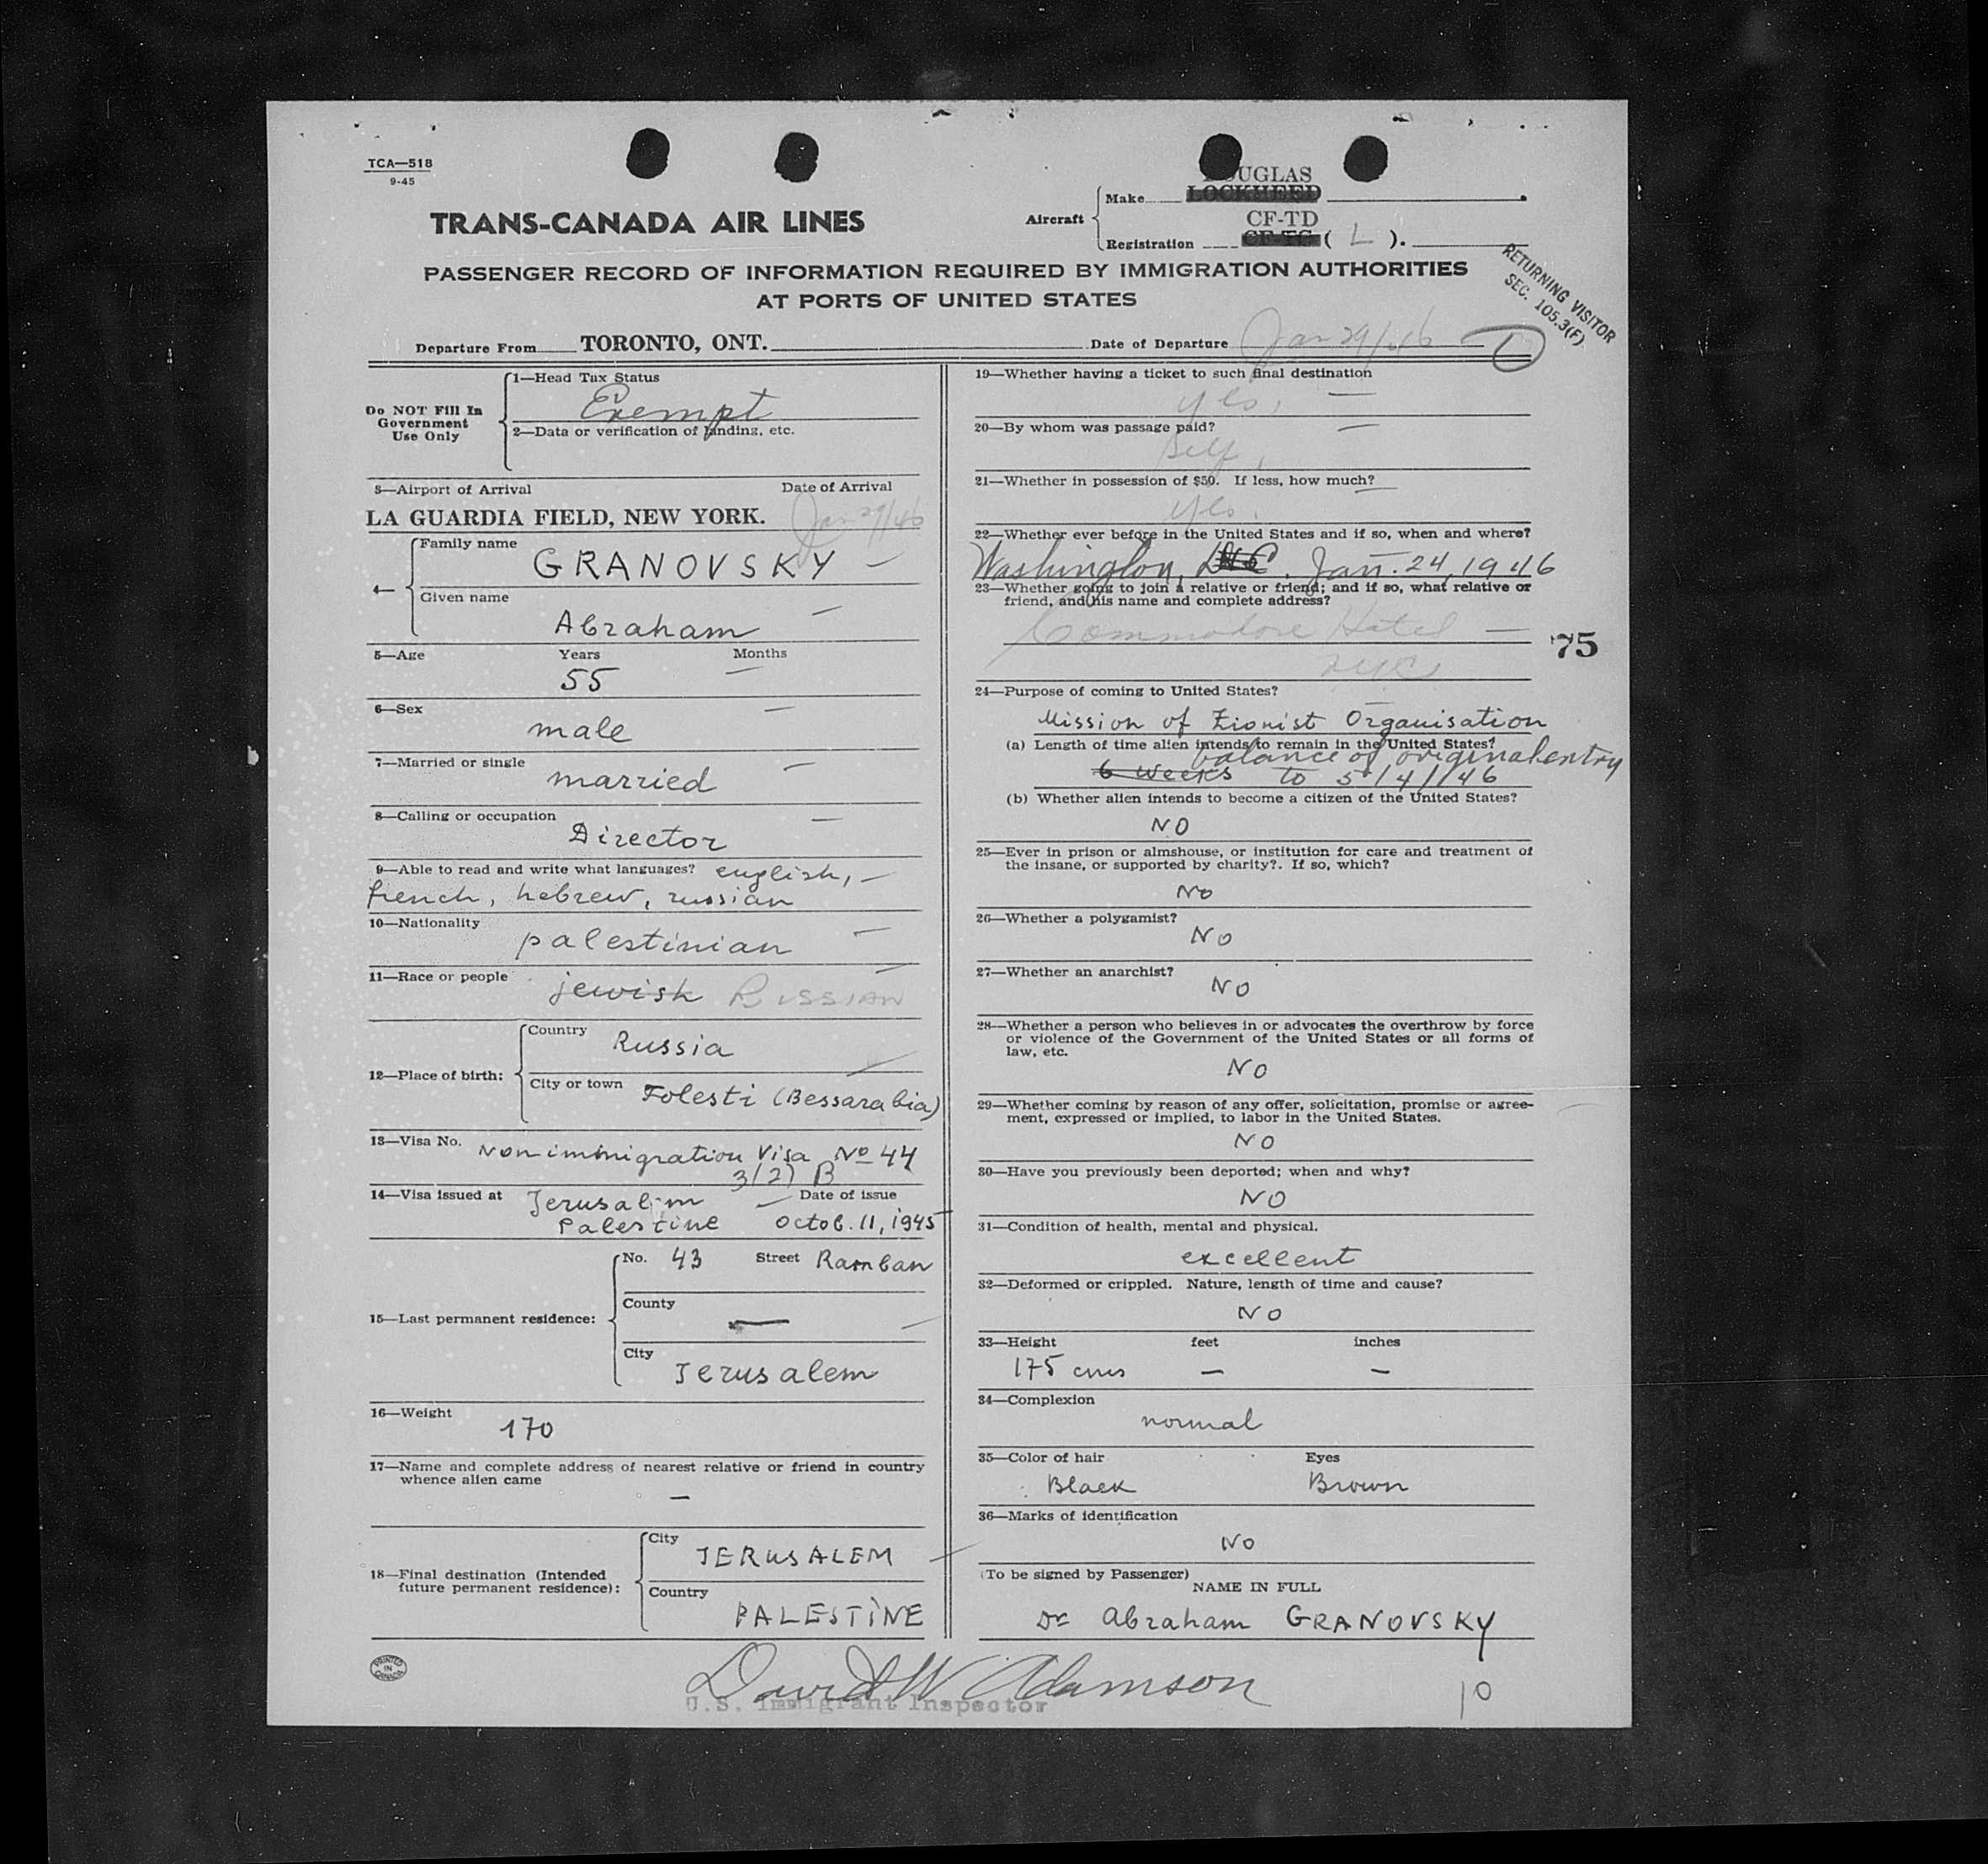 TCA—518
9-45
TRANS-CANADA AIR LINES
Aircraft
Make DOUGLAS
LOCKHEED
Registration CF-TD
CF-TC ( L ).
RETURNING VISITOR
SEC. 105.3(F)
PASSENGER RECORD OF INFORMATION REQUIRED BY IMMIGRATION AUTHORITIES
AT PORTS OF UNITED STATES
Departure From TORONTO, ONT. Date of Departure Jan 29/46
Do NOT Fill In
Government
Use Only
1—Head Tax Status
Exempt
2—Data or verification of landing, etc.
3—Airport of Arrival Date of Arrival
LA GUARDIA FIELD, NEW YORK. Jan 29/46
4—
Family name
GRANOVSKY
Given name
Abraham
5—Age Years Months
55
6—Sex
male
7—Married or single
married
8—Calling or occupation
Director
9—Able to read and write what languages? english,
french, hebrew, russian
10—Nationality
palestinian
11—Race or people jewish RUSSIAN
12—Place of birth:
Country
Russia
City or town Folesti (Bessarabia)
13—Visa No. Nonimmigration Visa No 44
3(2) B
14—Visa issued at Jerusalem Date of issue
Palestine Octob. 11, 1945
15—Last permanent residence:
No. 43 Street Ramban
County —
City
Jerusalem
16—Weight
170
17—Name and complete address of nearest relative or friend in country
whence alien came
—
18—Final destination (Intended
future permanent residence):
City
JERUSALEM
Country
PALESTINE
19—Whether having a ticket to such final destination
yes,
20—By whom was passage paid?
Self,
21—Whether in possession of $50. If less, how much?
yes.
22—Whether ever before in the United States and if so, when and where?
Washington, Jan. 24, 1946
23—Whether going to join a relative or friend; and if so, what relative or
friend, and his name and complete address?
Commodore Hotel
NYC
75
24—Purpose of coming to United States?
Mission of Zionist Organisation
(a) Length of time alien intends to remain in the United States?
balance of original entry
6 weeks to 5/4/46
(b) Whether alien intends to become a citizen of the United States?
NO
25—Ever in prison or almshouse, or institution for care and treatment of
the insane, or supported by charity?. If so, which?
No
26—Whether a polygamist?
NO
27—Whether an anarchist?
NO
28—Whether a person who believes in or advocates the overthrow by force
or violence of the Government of the United States or all forms of
law, etc.
NO
29—Whether coming by reason of any offer, solicitation, promise or agree-
ment, expressed or implied, to labor in the United States.
NO
30—Have you previously been deported; when and why?
NO
31—Condition of health, mental and physical.
excellent
32—Deformed or crippled. Nature, length of time and cause?
NO
33—Height feet inches
175 cms — —
34—Complexion
normal
35—Color of hair Eyes
Black Brown
36—Marks of identification
No
(To be signed by Passenger)
NAME IN FULL
Dr Abraham GRANOVSKY
PRINTED
IN
CANADA
David W Adamson
U.S. Immigrant Inspector
10